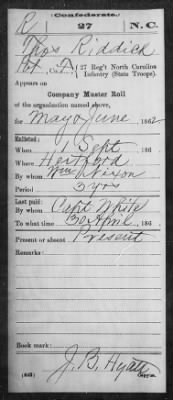 Confederate.
R 27 N.C.
Thos Riddick
Pvt, Co. F, 27 Reg't North Carolina
Infantry (State Troops)
Appears on
Company Muster Roll
of the organization named above,
for May & June, 1862
Enlisted:
When 1 Sept, 186
Where Hertford
By whom Wm Nixon
Period 3 yrs
Last paid:
By whom Capt White
To what time 30 April, 186
Present or absent Present
Remarks:
Book mark:
J. B. Hyatt
(642) Copyist.